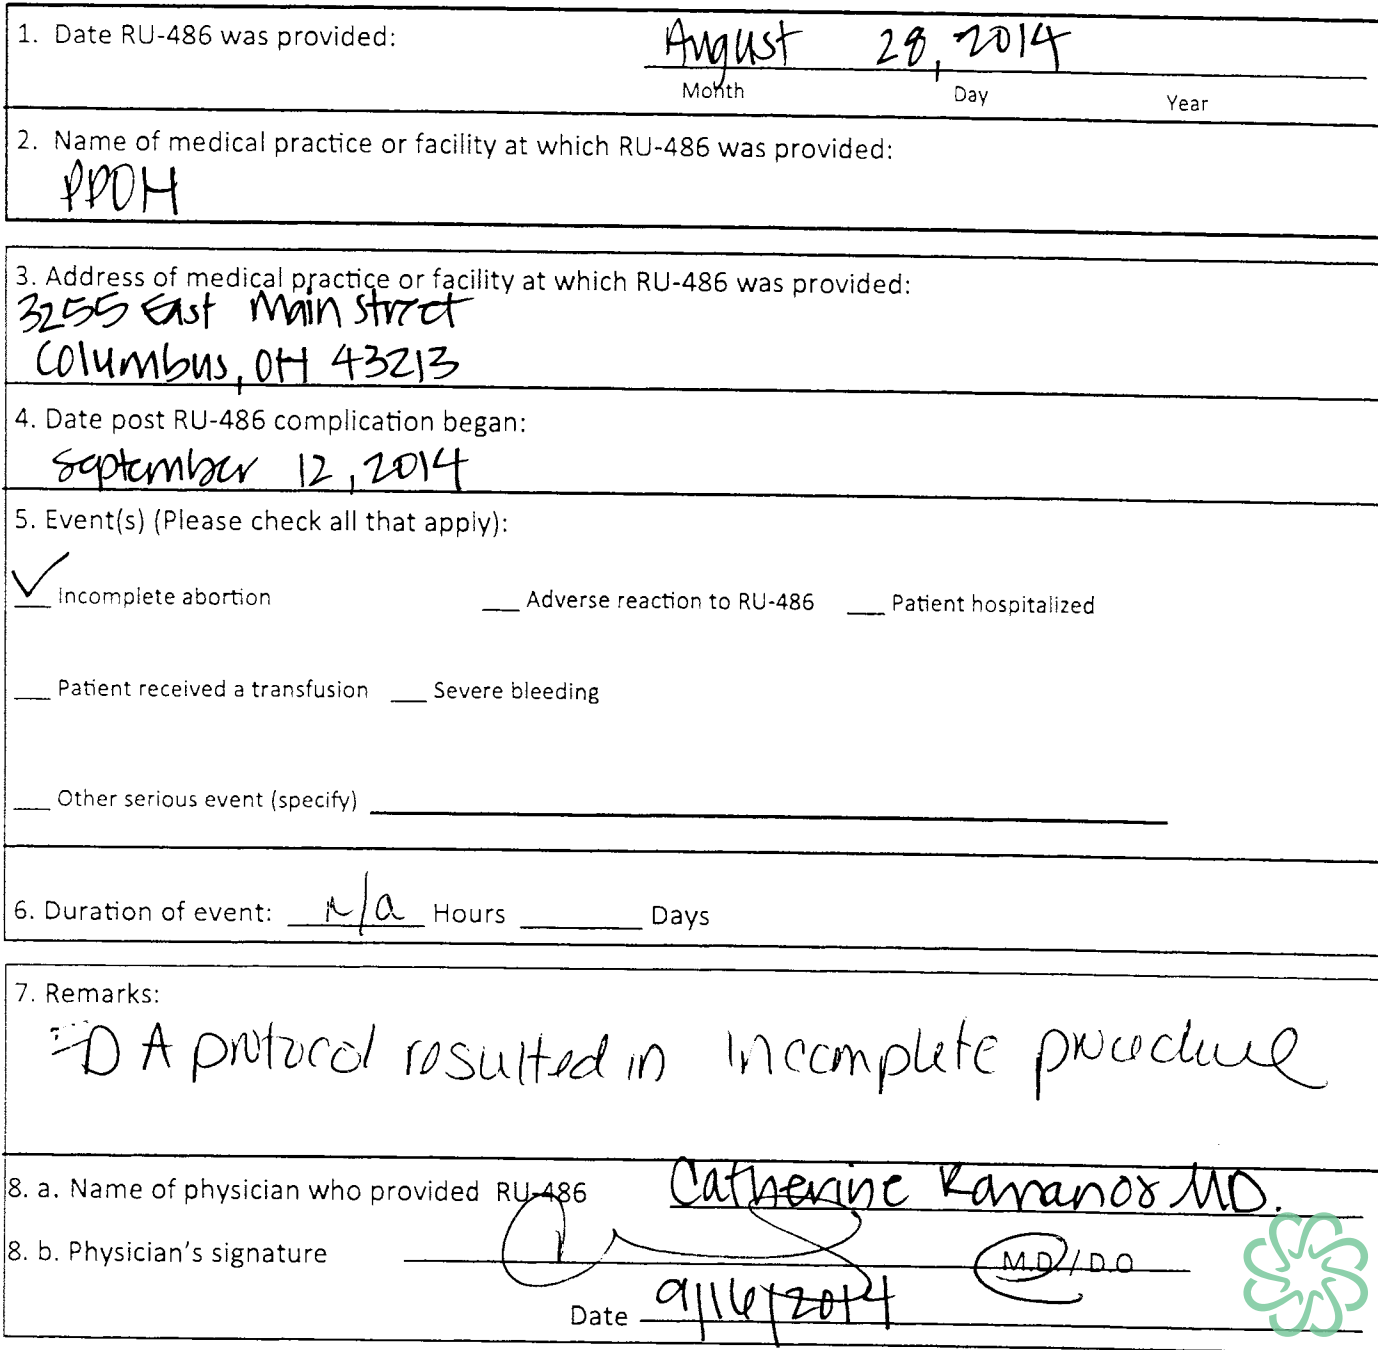 1. Date RU-486 was provided: August 28, 2014
Month Day Year
2. Name of medical practice or facility at which RU-486 was provided:
PPOH
3. Address of medical practice or facility at which RU-486 was provided:
3255 East Main Street
Columbus, OH 43213
4. Date post RU-486 complication began:
September 12, 2014
5. Event(s) (Please check all that apply):
✓ Incomplete abortion __ Adverse reaction to RU-486 __ Patient hospitalized
__ Patient received a transfusion __ Severe bleeding
__ Other serious event (specify)
6. Duration of event: n/a Hours ____ Days
7. Remarks:
A protocol resulted in incomplete procedure
8. a. Name of physician who provided RU-486 Catherine MD.
8. b. Physician's signature M.D / D.O
Date 9/16/2014